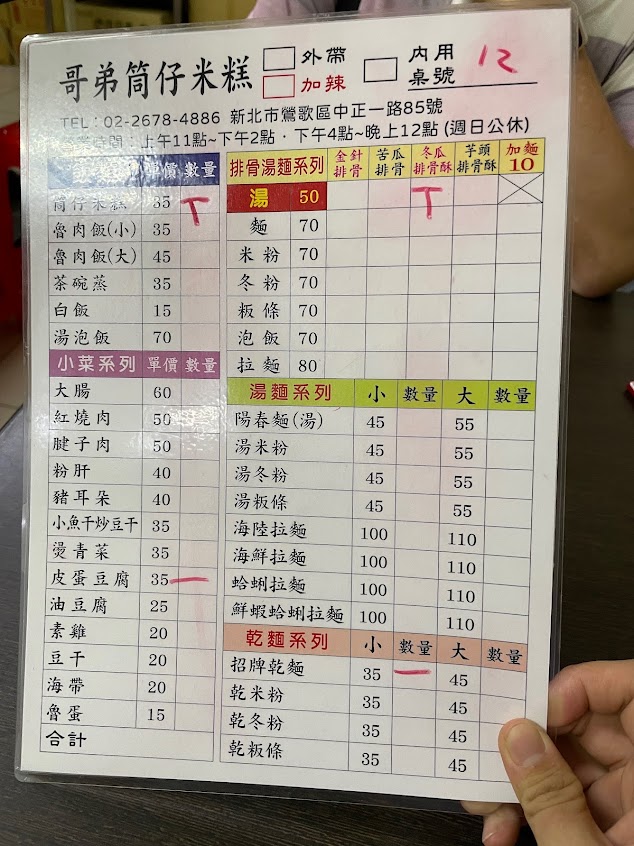 哥弟筒仔米糕
外帶
加辣
內用
桌號 12
TEL：02-2678-4886 新北市鶯歌區中正一路85號
時間：上午11點~下午2點．下午4點~晚上12點 (週日公休)
單價 數量
筒仔米糕 35 T
魯肉飯(小) 35
魯肉飯(大) 45
茶碗蒸 35
白飯 15
湯泡飯 70
小菜系列 單價 數量
大腸 60
紅燒肉 50
腱子肉 50
粉肝 40
豬耳朵 40
小魚干炒豆干 35
燙青菜 35
皮蛋豆腐 35 一
油豆腐 25
素雞 20
豆干 20
海帶 20
魯蛋 15
合計
排骨湯麵系列 金針排骨 苦瓜排骨 冬瓜排骨酥 芋頭排骨酥 加麵10
湯 50 T
麵 70
米粉 70
冬粉 70
粄條 70
泡飯 70
拉麵 80
湯麵系列 小 數量 大 數量
陽春麵(湯) 45 55
湯米粉 45 55
湯冬粉 45 55
湯粄條 45 55
海陸拉麵 100 110
海鮮拉麵 100 110
蛤蜊拉麵 100 110
鮮蝦蛤蜊拉麵 100 110
乾麵系列 小 數量 大 數量
招牌乾麵 35 一 45
乾米粉 35 45
乾冬粉 35 45
乾粄條 35 45